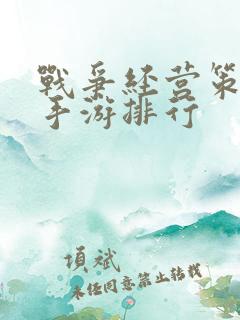 戰爭经营策
手游排行
项斌
未经同意禁止转载